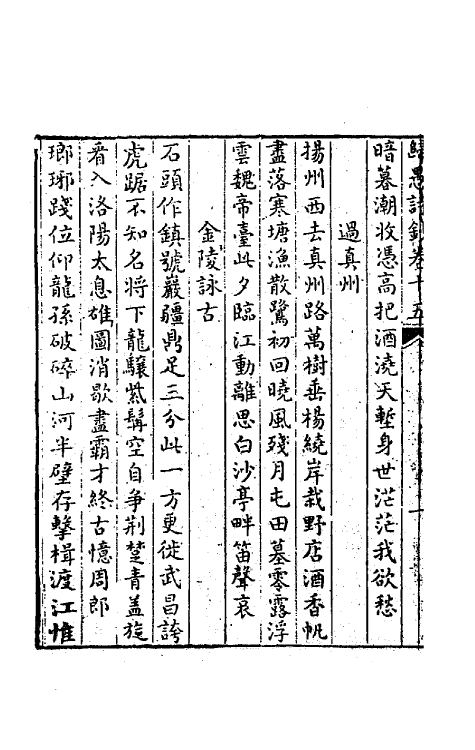 歸愚詩鈔卷十五
暗暮潮收憑高把酒澆天塹身世茫茫我欲愁
過真州
揚州西去真州路萬樹垂楊繞岸栽野店酒香帆
盡落寒塘漁散鷺初回曉風殘月屯田墓零露浮
雲魏帝臺此夕臨江動離思白沙亭畔笛聲哀
金陵詠古
石頭作鎮號巖疆鼎足三分此一方更徙武昌誇
虎踞不知名將下龍驤紫髯空自爭荆楚青葢旋
看入洛陽太息雄圖消歇盡霸才終古憶周郎
瑯琊踐位仰龍孫破碎山河半壁存擊楫渡江惟